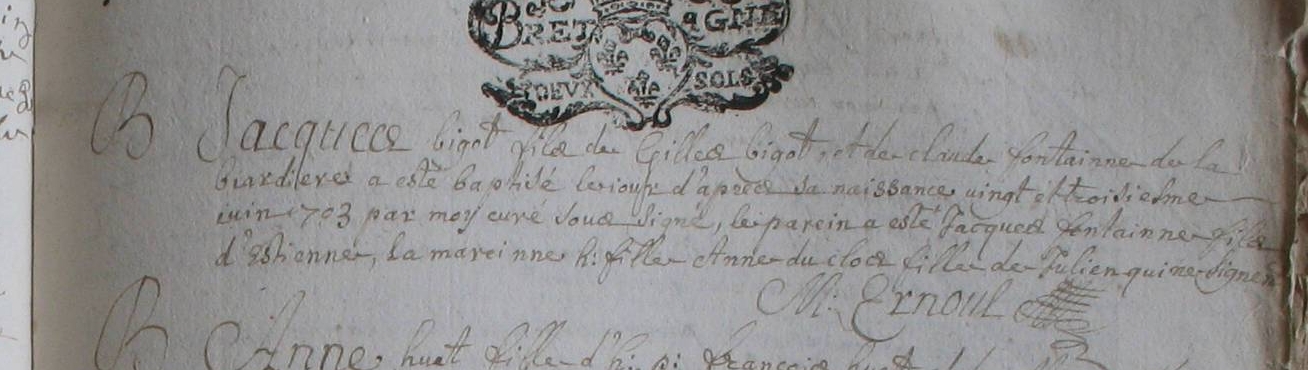 BRETAGNE
DEUX SOLS
B Jacques bigot fils de Gilles bigot et de claude fontainne de la
biardiere a esté baptisé le iour d'apres sa naissance vingt et troisiesme
iuin 1703 par moy curé sous signé, le parein a esté Jacques fontainne fils
d'Estienne, La mareinne h: fille Anne du clos fille de Julien qui ne signent
M: Ernoul
B Anne huet fille d'h: françois huet